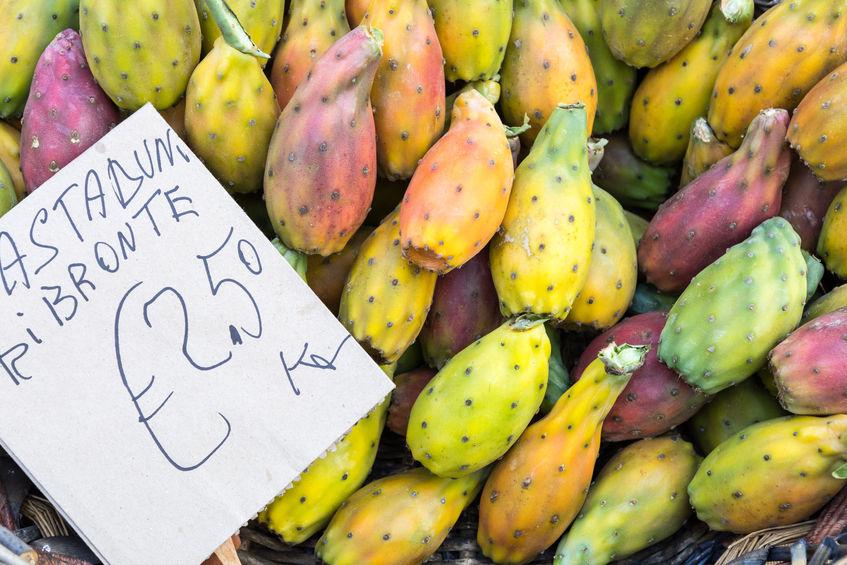 ASTARDUNI
Ri BRONTE
€ 2.50